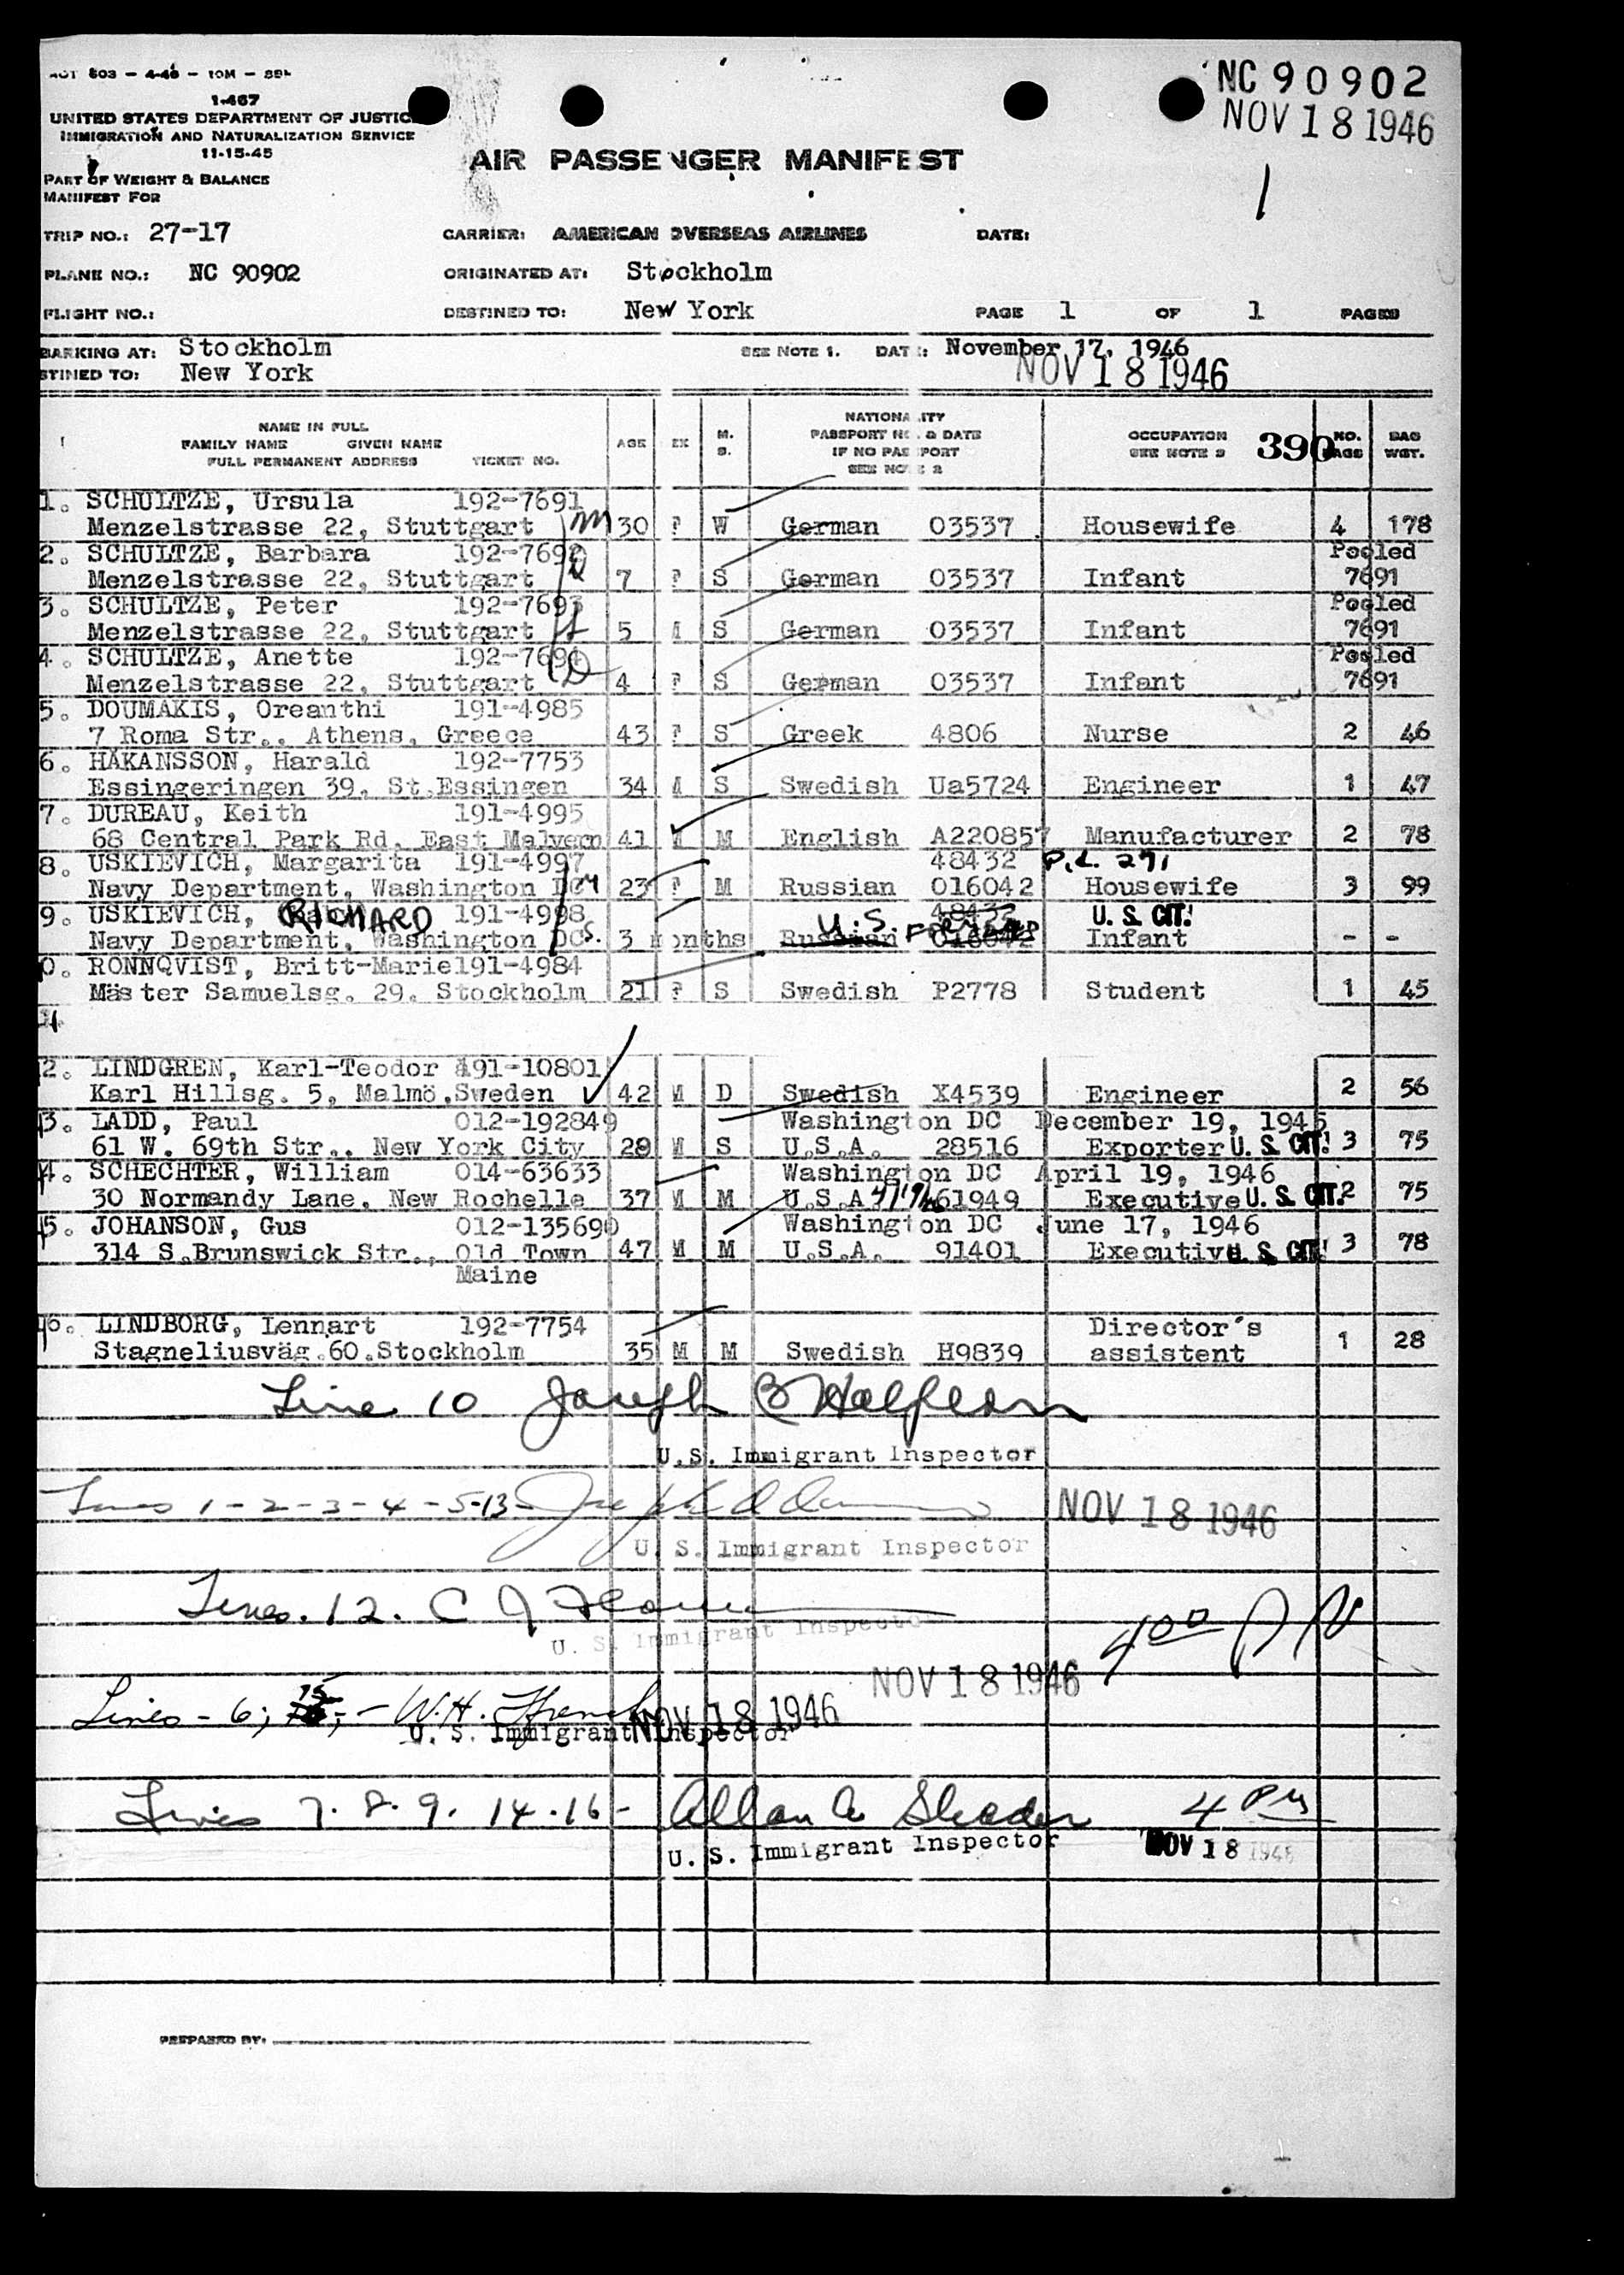 NC 90902
NOV 18 1946
1-467
UNITED STATES DEPARTMENT OF JUSTIC
IMMIGRATION AND NATURALIZATION SERVICE
11-15-45
AIR PASSENGER MANIFEST
PART OF WEIGHT & BALANCE
MANIFEST FOR
1
TRIP NO.: 27-17 CARRIER: AMERICAN OVERSEAS AIRLINES DATE:
PLANE NO.: NC 90902 ORIGINATED AT: Stockholm
FLIGHT NO.: DESTINED TO: New York PAGE 1 OF 1 PAGES
BARKING AT: Stockholm SEE NOTE 1. DAT : November 17, 1946
STINED TO: New York NOV 18 1946
NAME IN FULL
FAMILY NAME GIVEN NAME
FULL PERMANENT ADDRESS TICKET NO.
AGE EX M. S.
NATIONALITY
PASSPORT NO. & DATE
IF NO PASSPORT
SEE NOTE 2
OCCUPATION
SEE NOTE 3
390
NO. BAGS
BAG WGT.
1. SCHULTZE, Ursula 192-7691
Menzelstrasse 22, Stuttgart m 30 F W German 03537 Housewife 4 178
2. SCHULTZE, Barbara 192-7692 Pooled
Menzelstrasse 22, Stuttgart 7 F S German 03537 Infant 7691
3. SCHULTZE, Peter 192-7693 Pooled
Menzelstrasse 22, Stuttgart 5 M S German 03537 Infant 7691
4. SCHULTZE, Anette 192-7694 Pooled
Menzelstrasse 22, Stuttgart 4 F S German 03537 Infant 7691
5. DOUMAKIS, Oreanthi 191-4985
7 Roma Str., Athens, Greece 43 F S Greek 4806 Nurse 2 46
6. HAKANSSON, Harald 192-7753
Essingeringen 39, St.Essingen 34 M S Swedish Ua5724 Engineer 1 47
7. DUREAU, Keith 191-4995
68 Central Park Rd, East Malvern 41 M M English A220857 Manufacturer 2 78
8. USKIEVICH, Margarita 191-4997 48432 P.L. 271
Navy Department, Washington DC 23 F M Russian 016042 Housewife 3 99
9. USKIEVICH, RICHARD 191-4998 48432 U.S. U. S. CIT!
Navy Department, Washington DC 3 months Russian 016042 Infant - -
0. RONNQVIST, Britt-Marie 191-4984
Mäster Samuelsg. 29, Stockholm 21 F S Swedish P2778 Student 1 45
2. LINDGREN, Karl-Teodor 191-10801
Karl Hillsg. 5, Malmö,Sweden 42 M D Swedish X4539 Engineer 2 56
13. LADD, Paul 012-192849 Washington DC December 19, 1945
61 W. 69th Str., New York City 28 M S U.S.A. 28516 Exporter U. S. CIT! 3 75
14. SCHECHTER, William 014-63633 Washington DC April 19, 1946
30 Normandy Lane, New Rochelle 37 M M U.S.A 61949 Executive U. S. CIT! 2 75
15. JOHANSON, Gus 012-135690 Washington DC June 17, 1946
314 S.Brunswick Str., Old Town 47 M M U.S.A. 91401 Executive U. S. CIT! 3 78
Maine
16. LINDBORG, Lennart 192-7754 Director's
Stagneliusväg.60.Stockholm 35 M M Swedish H9839 assistent 1 28
Line 10 Joseph B Halpern
U.S. Immigrant Inspector
Lines 1-2-3-4-5-13-
NOV 18 1946
U. S. Immigrant Inspector
Lines. 12. C J
U. S. Immigrant Inspector
4 00 PM
NOV 18 1946
Lines - 6; 15 - W.H. French
U. S. Immigrant Inspector
NOV 18 1946
Lines 7. 8. 9. 14. 16 - Allan A. 4 PM
U. S. Immigrant Inspector NOV 18 1946
PREPARED BY: